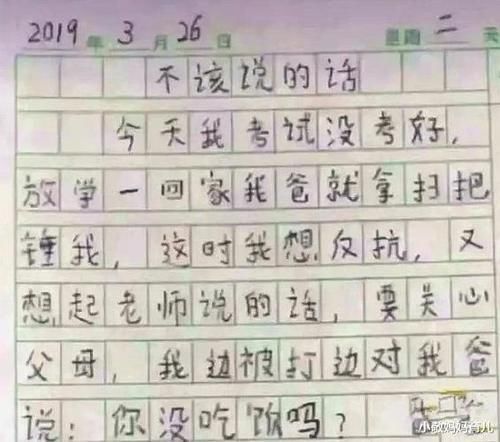 2019年3月26日 星期二 天
不该说的话
今天我考试没考好，
放学一回家我爸就拿扫把
锤我，这时我想反抗，又
想起老师说的话，要关心
父母，我边被打边对我爸
说：你没吃饭吗？
小歆妈妈育儿